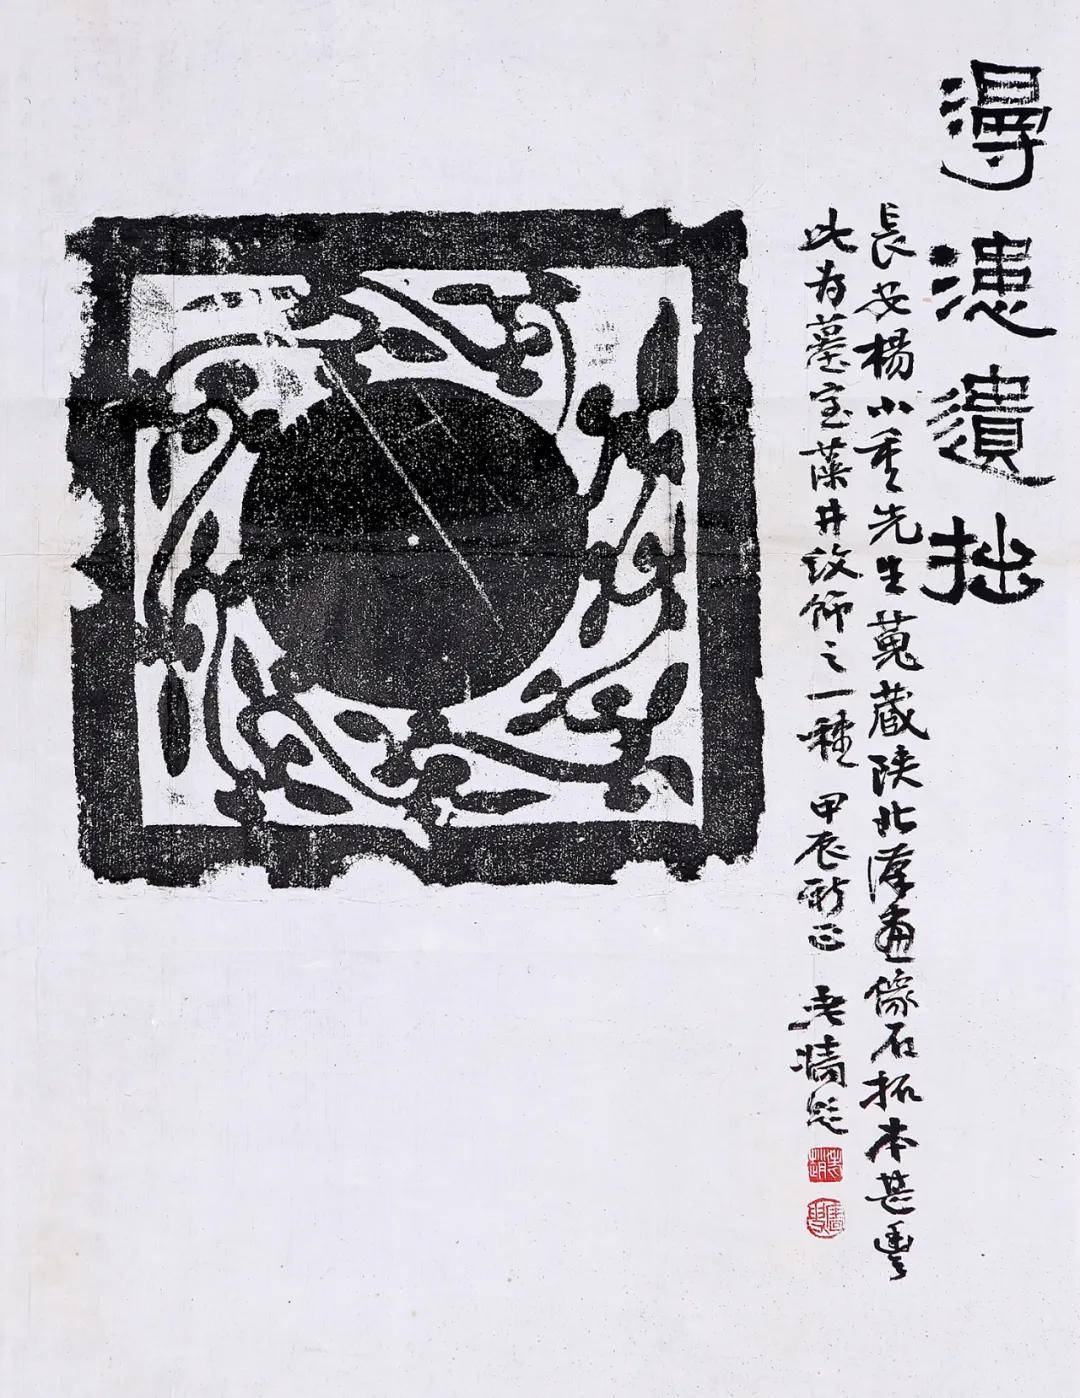 漫漶遺拙
長安楊小先生蒐藏陝北漢畫像石拓本甚豐
此为墓室藻井紋飾之一種 甲辰新正 老題